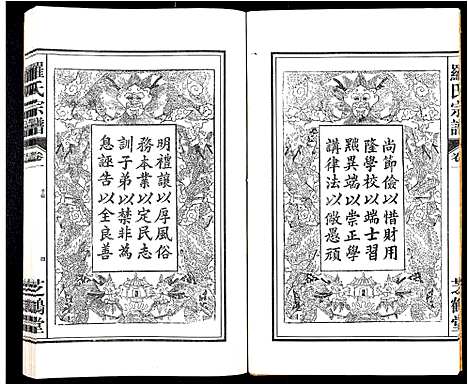 羅氏宗譜
卷
芝鶴堂
尚節儉以惜財用
隆學校以端士習
黜異端以崇正學
講律法以儆愚頑
明禮讓以厚風俗
務本業以定民志
訓子弟以禁非為
息誣告以全良善
羅氏宗譜
卷
芝鶴堂